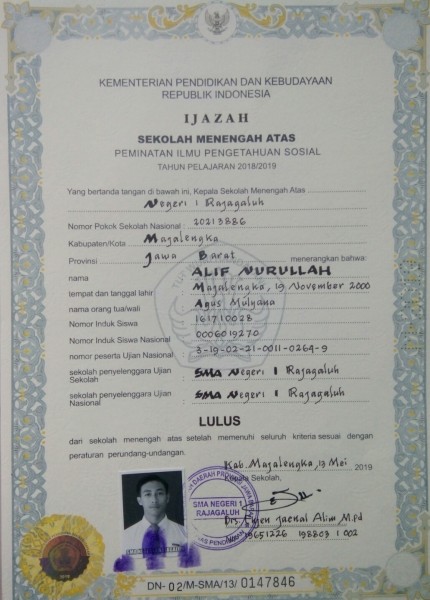 KEMENTERIAN PENDIDIKAN DAN KEBUDAYAAN
REPUBLIK INDONESIA
IJAZAH
SEKOLAH MENENGAH ATAS
PEMINATAN ILMU PENGETAHUAN SOSIAL
TAHUN PELAJARAN 2018/2019
Yang bertanda tangan di bawah ini, Kepala Sekolah Menengah Atas
Negeri 1 Rajagaluh
Nomor Pokok Sekolah Nasional : 20213886
Kabupaten/Kota : Majalengka
Provinsi : Jawa Barat menerangkan bahwa:
nama : ALIF NURULLAH
tempat dan tanggal lahir : Majalengka, 19 November 2000
nama orang tua/wali : Agus Mulyana
Nomor Induk Siswa : 161710028
Nomor Induk Siswa Nasional : 0006019270
nomor peserta Ujian Nasional : 3-19-02-21-0011-0264-9
sekolah penyelenggara Ujian Sekolah : SMA Negeri 1 Rajagaluh
sekolah penyelenggara Ujian Nasional : SMA Negeri 1 Rajagaluh
LULUS
dari sekolah menengah atas setelah memenuhi seluruh kriteria sesuai dengan
peraturan perundang-undangan.
Kab. Majalengka, 13 Mei 2019
Kepala Sekolah,
SMA NEGERI 1
RAJAGALUH
Drs. Jaenal Alim M.Pd
19651226 198803 1 002
DN-02/M-SMA/13/0147846